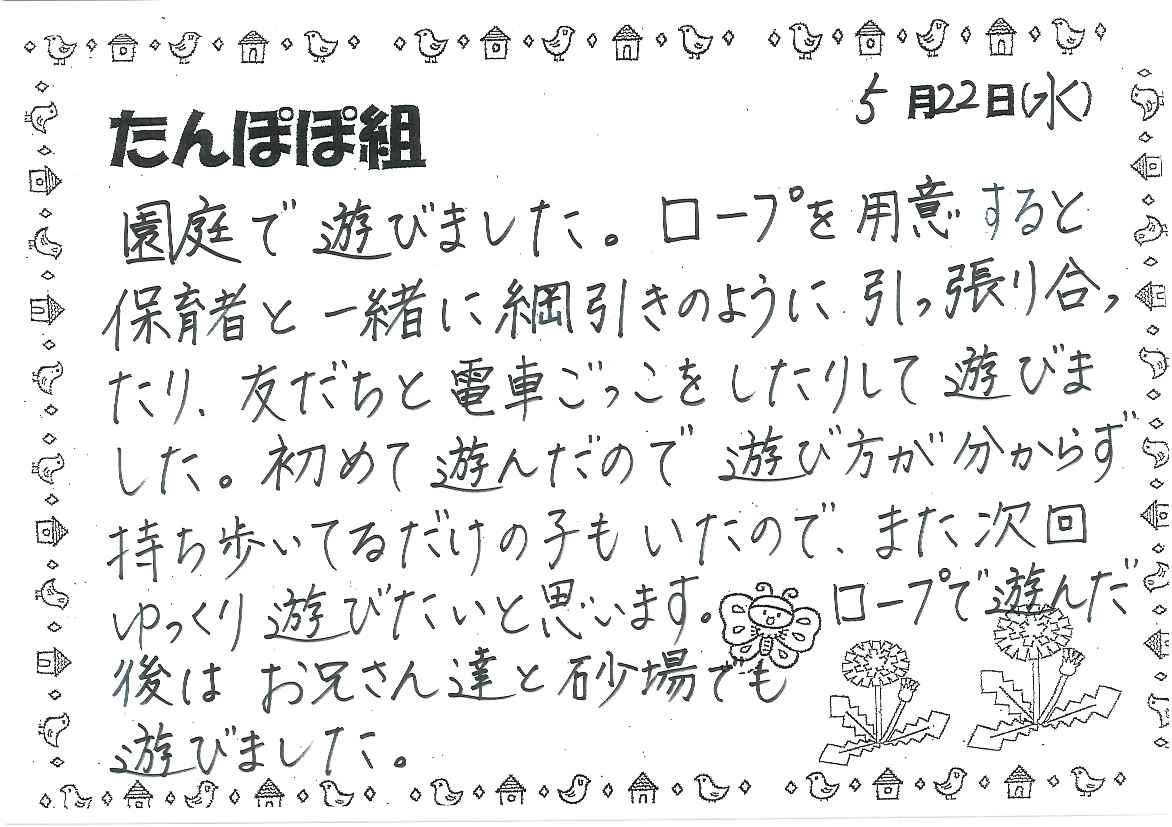 5月22日(水)
たんぽぽ組
園庭で遊びました。ロープを用意すると
保育者と一緒に綱引きのように引っ張り合っ
たり、友だちと電車ごっこをしたりして遊びま
した。初めて遊んだので遊び方が分からず
持ち歩いてるだけの子もいたので、また次回
ゆっくり遊びたいと思います。ロープで遊んだ
後はお兄さん達と砂場でも
遊びました。